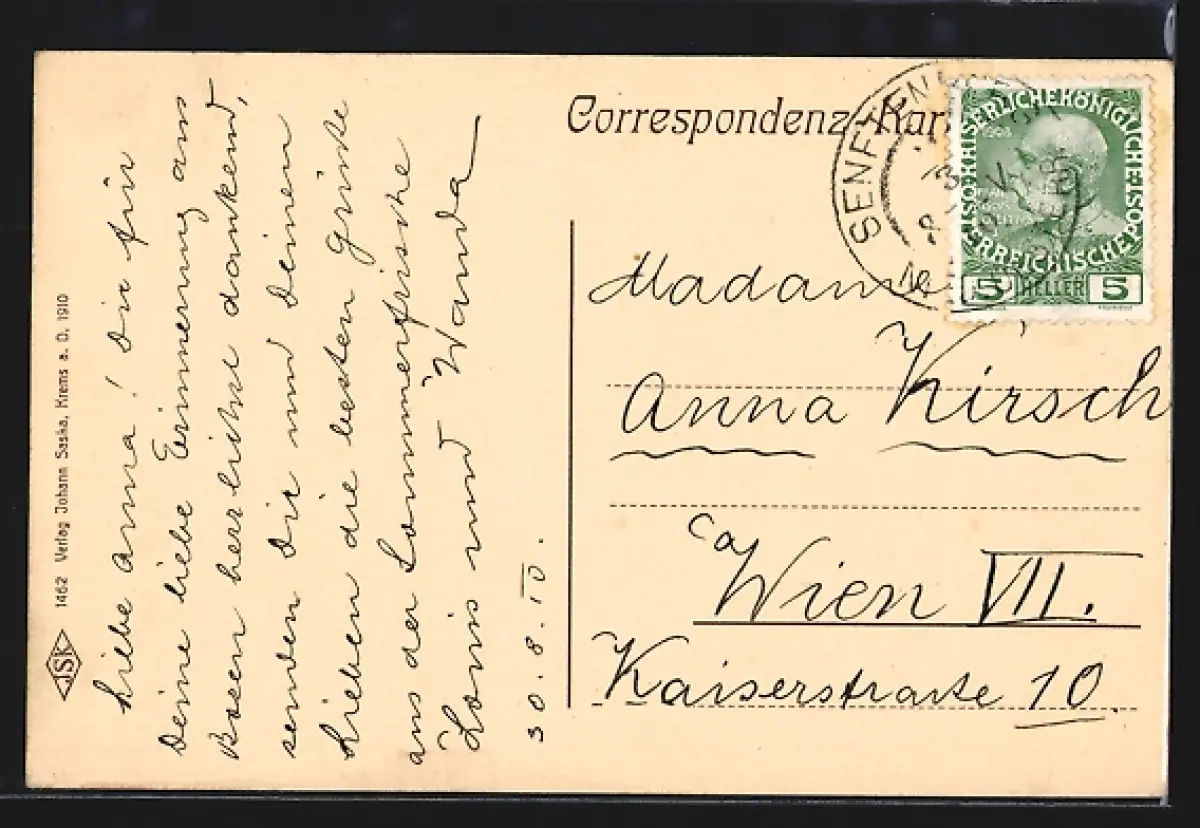 Correspondenz-Kar
SENFTEN
KAISERLICHE KÖNIGLICHE
ÖSTERREICHISCHE POST
1908
5 HELLER 5
Liebe Anna! Dir für
Deine liebe Erinnerung aus
Bozen herzlichst dankend,
senden Dir und Deinen
Lieben die besten Grüsse
aus der Sommerfrische
Louis und Wanda
30.8.10.
Madame
Anna Kirsch
Wien VII.
Kaiserstrasse 10
1462 Verlag Johann Saska, Krems a. D. 1910
JSK